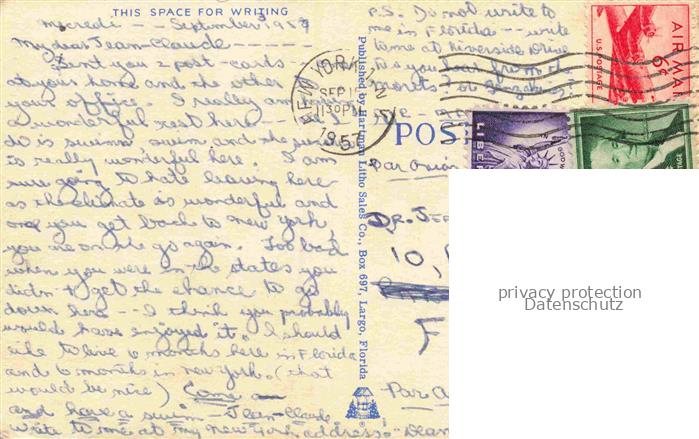 THIS SPACE FOR WRITING
mercredi -- September 3, 195
My dear Jean-Claude -----
Sent you 2 post-cards --
at your home and the other
your office. I really am
a wonderful rest here -- all
do is swimm, swim and the sun
is really wonderful here. I am
sure going to hate leaving here
as the climate is wonderful and
once you get back to new york,
you are on the go again. Too bad
when you were in the states you
didn't get the chance to go
down here -- I think you probably
would have enjoyed it. I should
like to live 6 months here in Florida
and 6 months in new york. (that
would be nice) Come
and have a swim - Jean-Claude
write to me at my new york address:
P.S. Do not write to
me in Florida -- write
to me at Riverside Drive
you hear from the
NEW YORK, N.Y.
SEP
130PM
195
AIR MAIL
6¢
U.S. POSTAGE
LIBER
POST
Par avion
DR. JE
10,
F
Par A
Published by Hartman Litho Sales Co., Box 697, Largo, Florida
privacy protection
Datenschutz